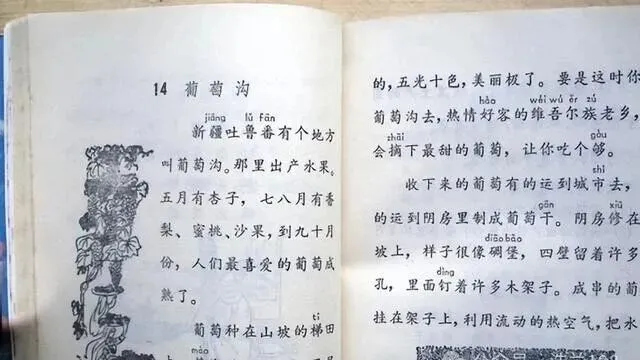 14 葡萄沟
jiāng lǔ fān
新疆吐鲁番有个地方
叫葡萄沟。那里出产水果。
五月有杏子，七八月有香
梨、蜜桃、沙果，到九十月
份，人们最喜爱的葡萄成
熟了。
tī
葡萄种在山坡的梯田
mào
的，五光十色，美丽极了。要是这时你
hào wéi wú ěr zú
葡萄沟去，热情好客的维吾尔族老乡，
zhāi gòu
会摘下最甜的葡萄，让你吃个够。
shì
收下来的葡萄有的运到城市去，
gān xiū
的运到阴房里制成葡萄干。阴房修在
diāo bǎo
坡上，样子很像碉堡，四壁留着许多
dìng
孔，里面钉着许多木架子。成串的葡萄
挂在架子上，利用流动的热空气，把水